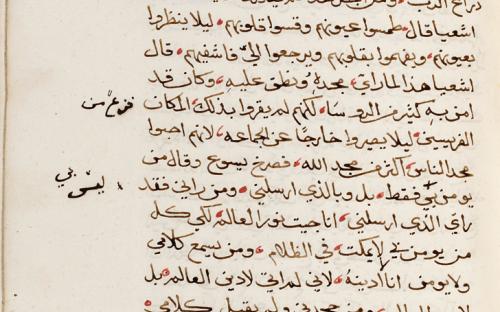 ذراع الرب
اشعيا قال طمسوا عيونهم وقسوا قلوبهم ليلا ينظروا
بعيونهم ويفهموا بقلوبهم ويرجعوا اليّ فاشفيهم قال
اشعيا هذا لما رائ مجده ونطق عليه وكان قد
امن به كثير من الروسا لكنهم لم يقروا بذلك لمكان
الفريسين ليلا يصيروا خارجًا عن الجماعه لانهم احبوا
مجد الناس اكثر من مجد الله فصرخ يسوع وقال من
يومن بي فقط بل وبالذي ارسلني ومن راني فقد
راي الذي ارسلني انا جيت نور العالم لكي كل
من يومن بي لا يمكت في الظلام ومن يسمع كلامي
ولا يومن انا ادينه لاني لم اتي لادين العالم بل
ومن جحدني ولم يقبل كلامي
فزع من
ليس بي